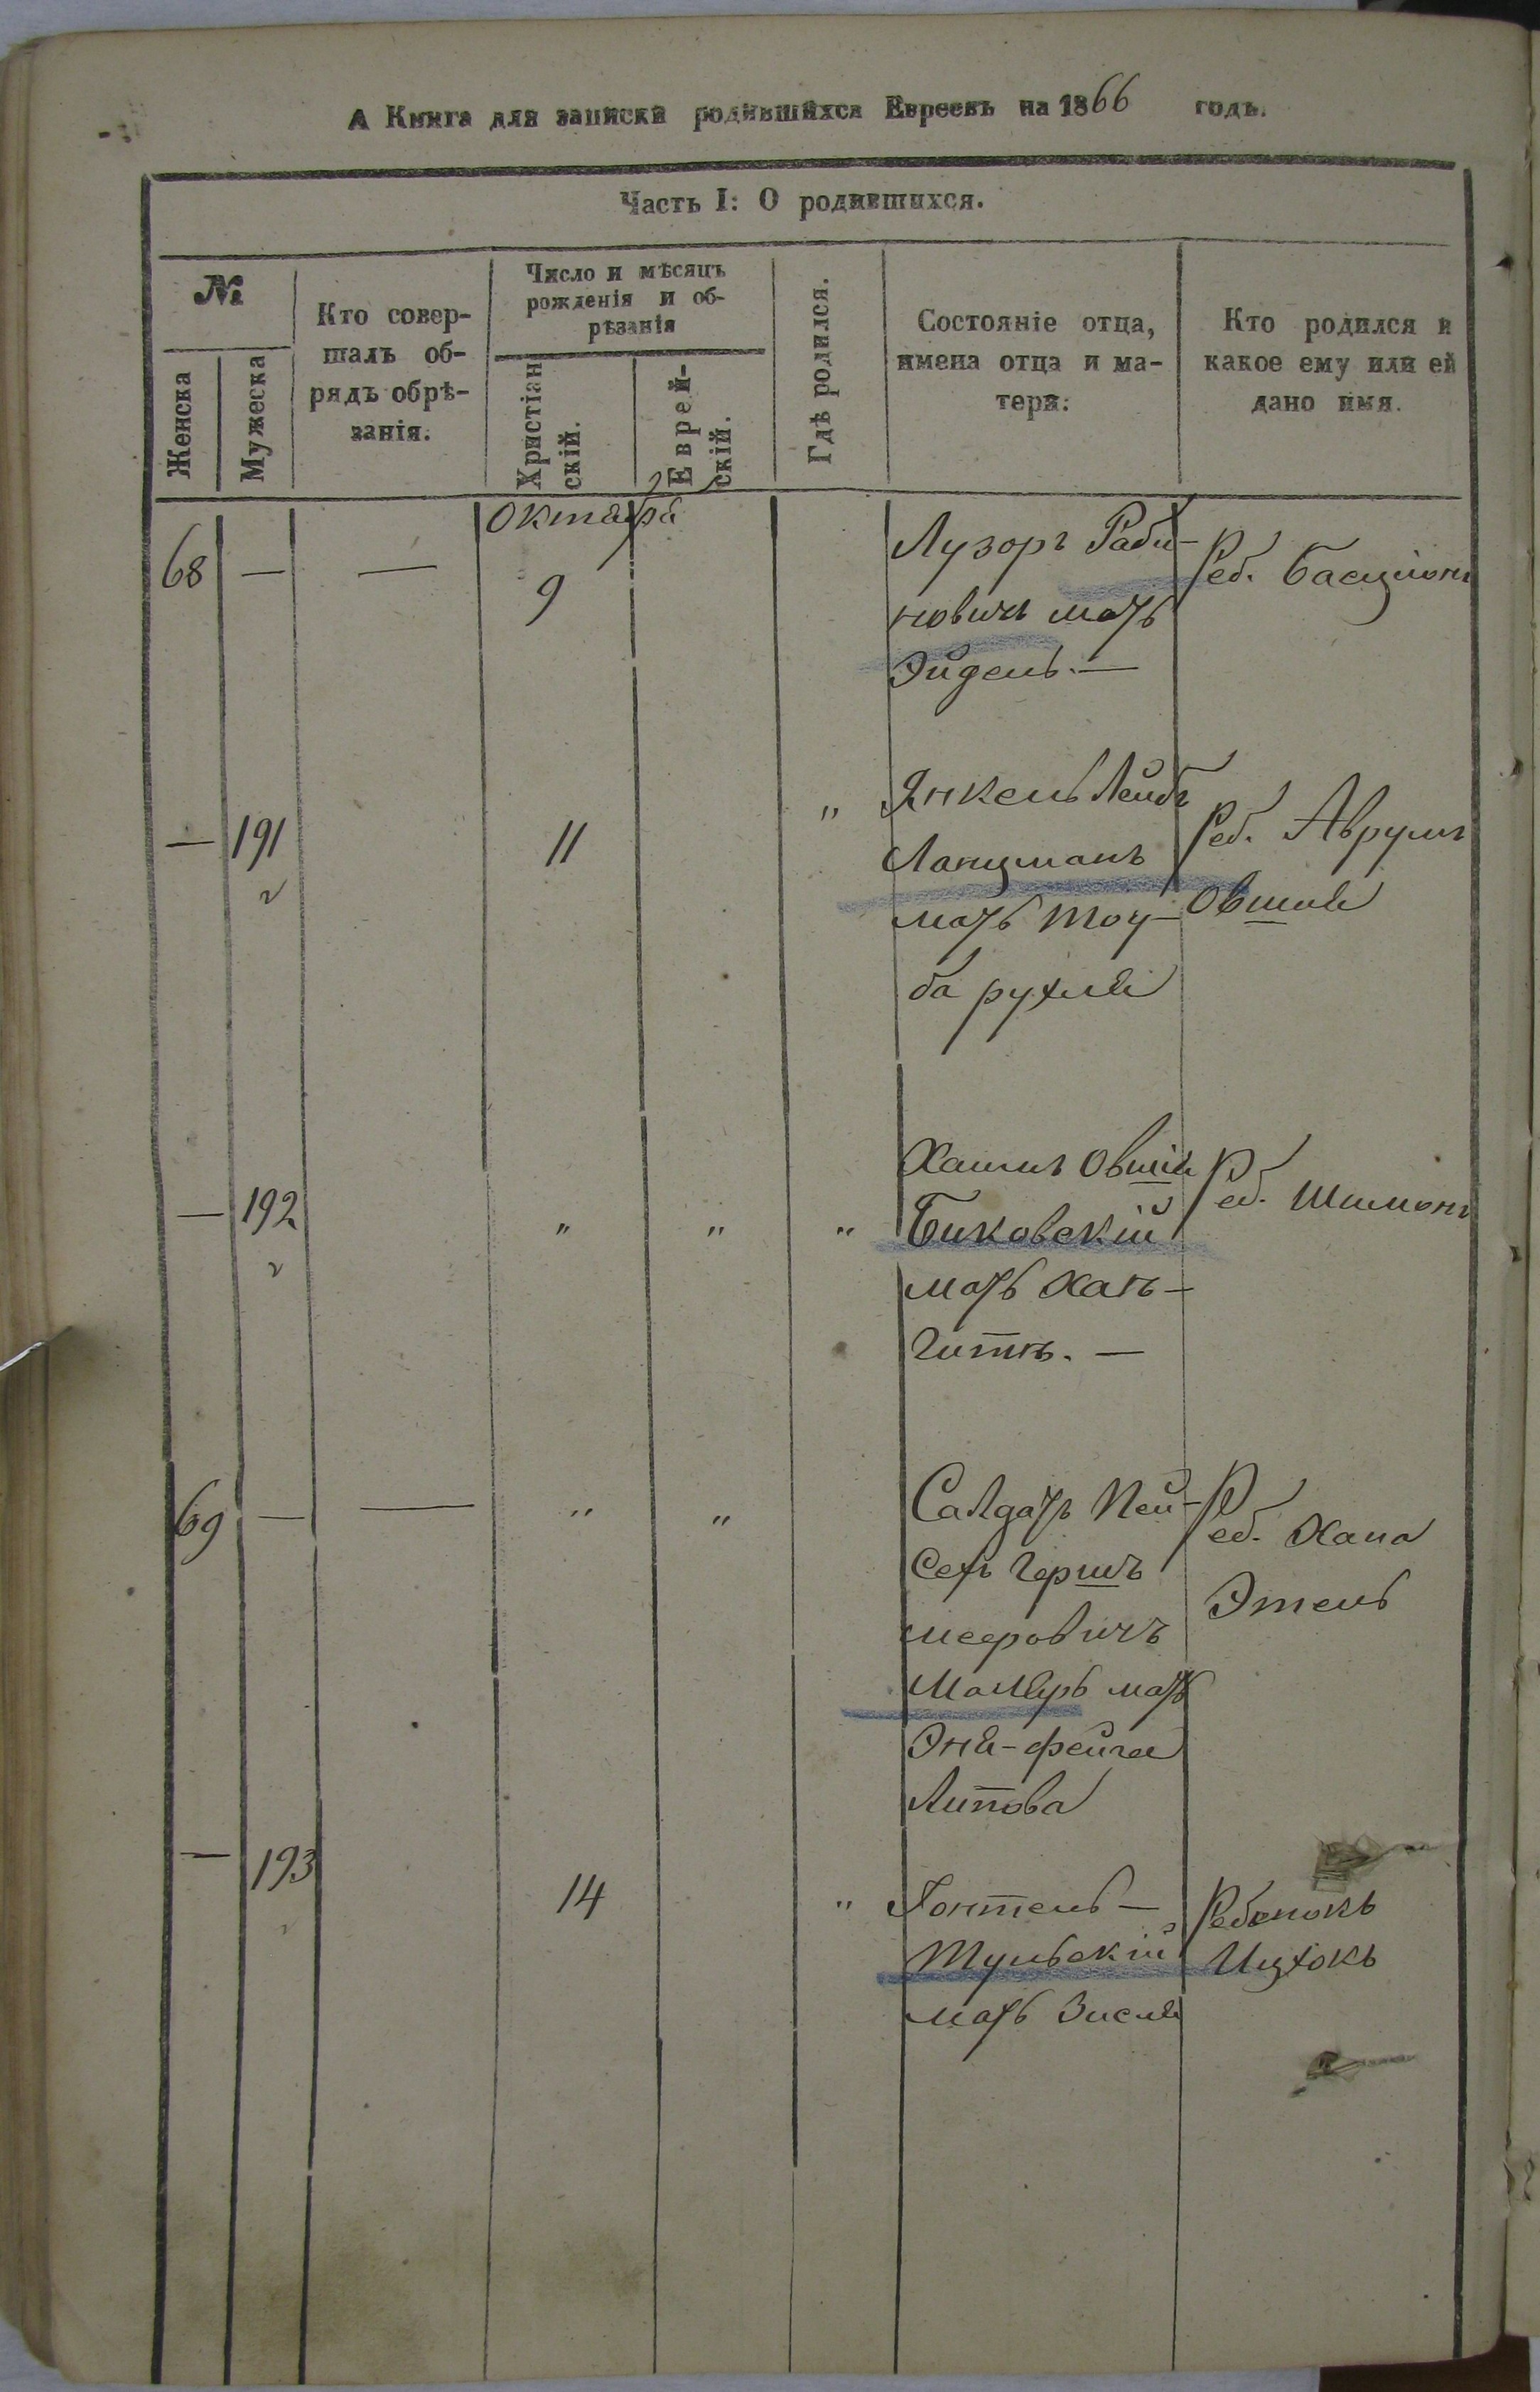 А Книга для записки родившихся Евреевъ на 1866 годъ.
Часть I: О родившихся.
№
Женска
Мужеска
Кто совер-
шалъ об-
рядъ обрѣ-
занія.
Число и мѣсяцъ
рожденія и об-
рѣзанія
Христіан
скій.
Еврей-
скій.
Гдѣ родился.
Состояніе отца,
имена отца и ма-
тери:
Кто родился и
какое ему или ей
дано имя.
Октября
68 — — 9
Лузоръ Раби-
новичъ мать
Эйдель. —
Реб. Басціонъ
— 191 11 "
Янкель Лейбъ
Ланцманъ
мать Тоу-
ба рухля
Реб. Аврумъ
Овшія
— 192 " " "
Хаимъ Овшія
Биковскій
мать Хая-
Гитня. —
Реб. Шимонъ
69 — — " "
Салдатъ Пей-
сехъ Гершъ
мееровичъ
Маляръ мать
Эня-фейга
Липова
Реб. Хана
Этель
— 193 14 "
Контель —
Тульскій
мать Зисля
Ребенокъ
Ицхокъ